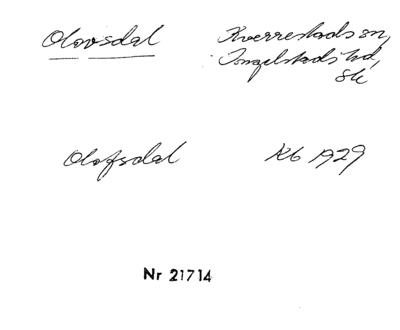 Olovsdal
Kverrestads sn,
Ingelstads hd,
Sk
Olofsdal
Kb 1929
Nr 21714